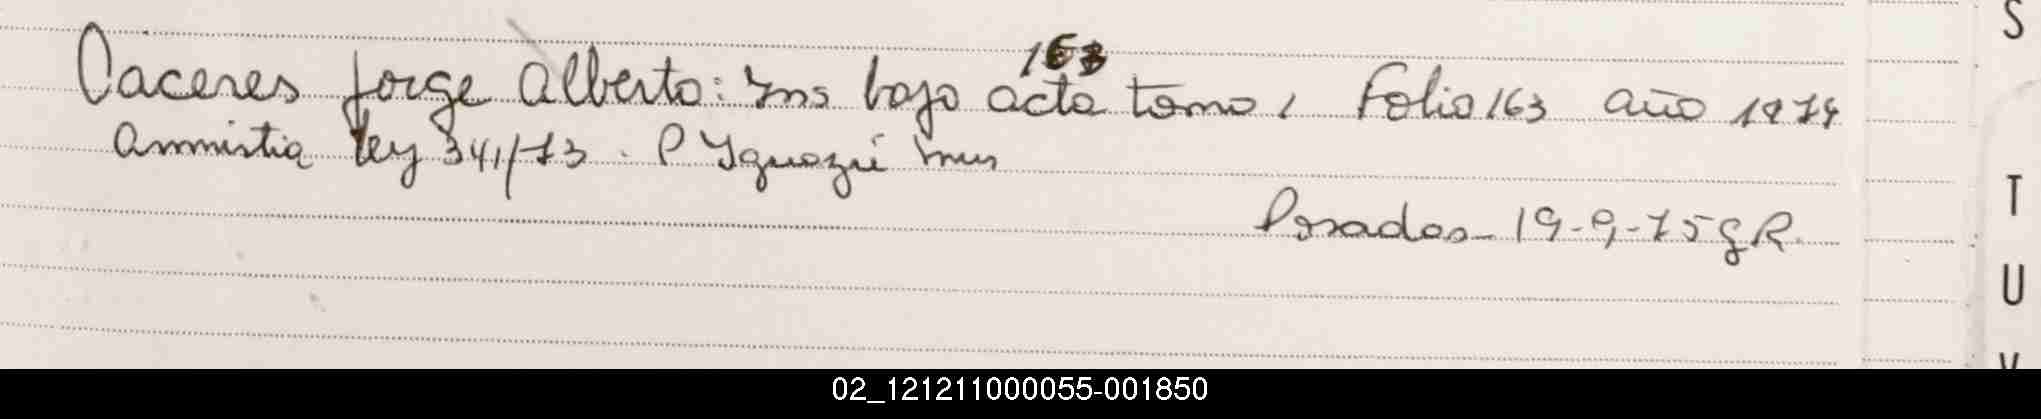 Caceres Jorge Alberto: Ins bajo acta 163 tomo 1 Folio 163 año 1974
Amnistia Ley 341/73. P Yguazú Mnes
Posadas - 19-9-75 gR.
S
T
U
V
02_121211000055-001850